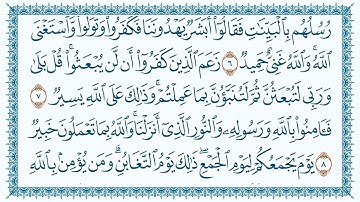 رُسُلُهُم بِالْبَيِّنَاتِ فَقَالُوا أَبَشَرٌ يَهْدُونَنَا فَكَفَرُوا وَتَوَلَّوا وَّاسْتَغْنَى
اللَّهُ وَاللَّهُ غَنِيٌّ حَمِيدٌ ٦ زَعَمَ الَّذِينَ كَفَرُوا أَن لَّن يُبْعَثُوا قُلْ بَلَى
وَرَبِّي لَتُبْعَثُنَّ ثُمَّ لَتُنَبَّؤُنَّ بِمَا عَمِلْتُمْ وَذَلِكَ عَلَى اللَّهِ يَسِيرٌ ٧
فَآمِنُوا بِاللَّهِ وَرَسُولِهِ وَالنُّورِ الَّذِي أَنزَلْنَا وَاللَّهُ بِمَا تَعْمَلُونَ خَبِيرٌ ٨
يَوْمَ يَجْمَعُكُمْ لِيَوْمِ الْجَمْعِ ذَلِكَ يَوْمُ التَّغَابُنِ وَمَن يُؤْمِن بِاللَّهِ